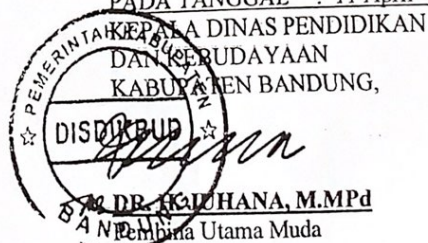 PADA TANGGAL : 11 April
KEPALA DINAS PENDIDIKAN
DAN KEBUDAYAAN
KABUPATEN BANDUNG,
PEMERINTAH KABUPATEN
DISDIKBUD
BANDUNG
DR. H. JUHANA, M.MPd
Pembina Utama Muda